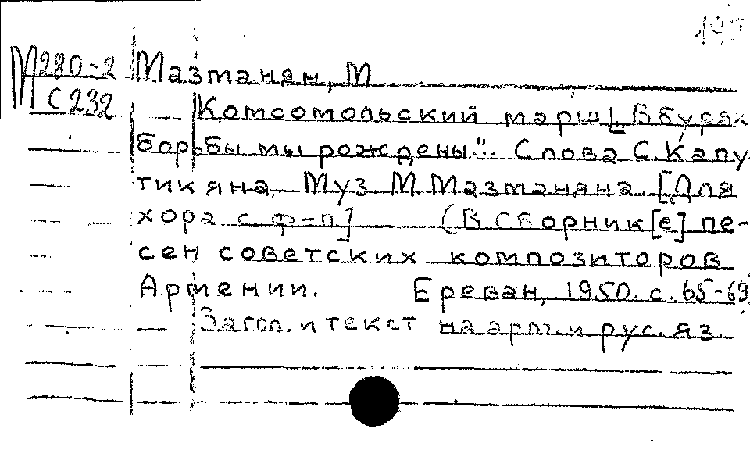 М280-2 Мазманян, М
С232
Комсомольский марш [„В буря
борьбы мы рождены“. Слова С. Капу
тикяна Муз М. Мазманяна. [Для
хора с ф-п] (В сборник[е] пе-
сен советских композиторов
Армении. Ереван, 1950. с. 65-69
Загол. и текст на арм. и рус. яз.